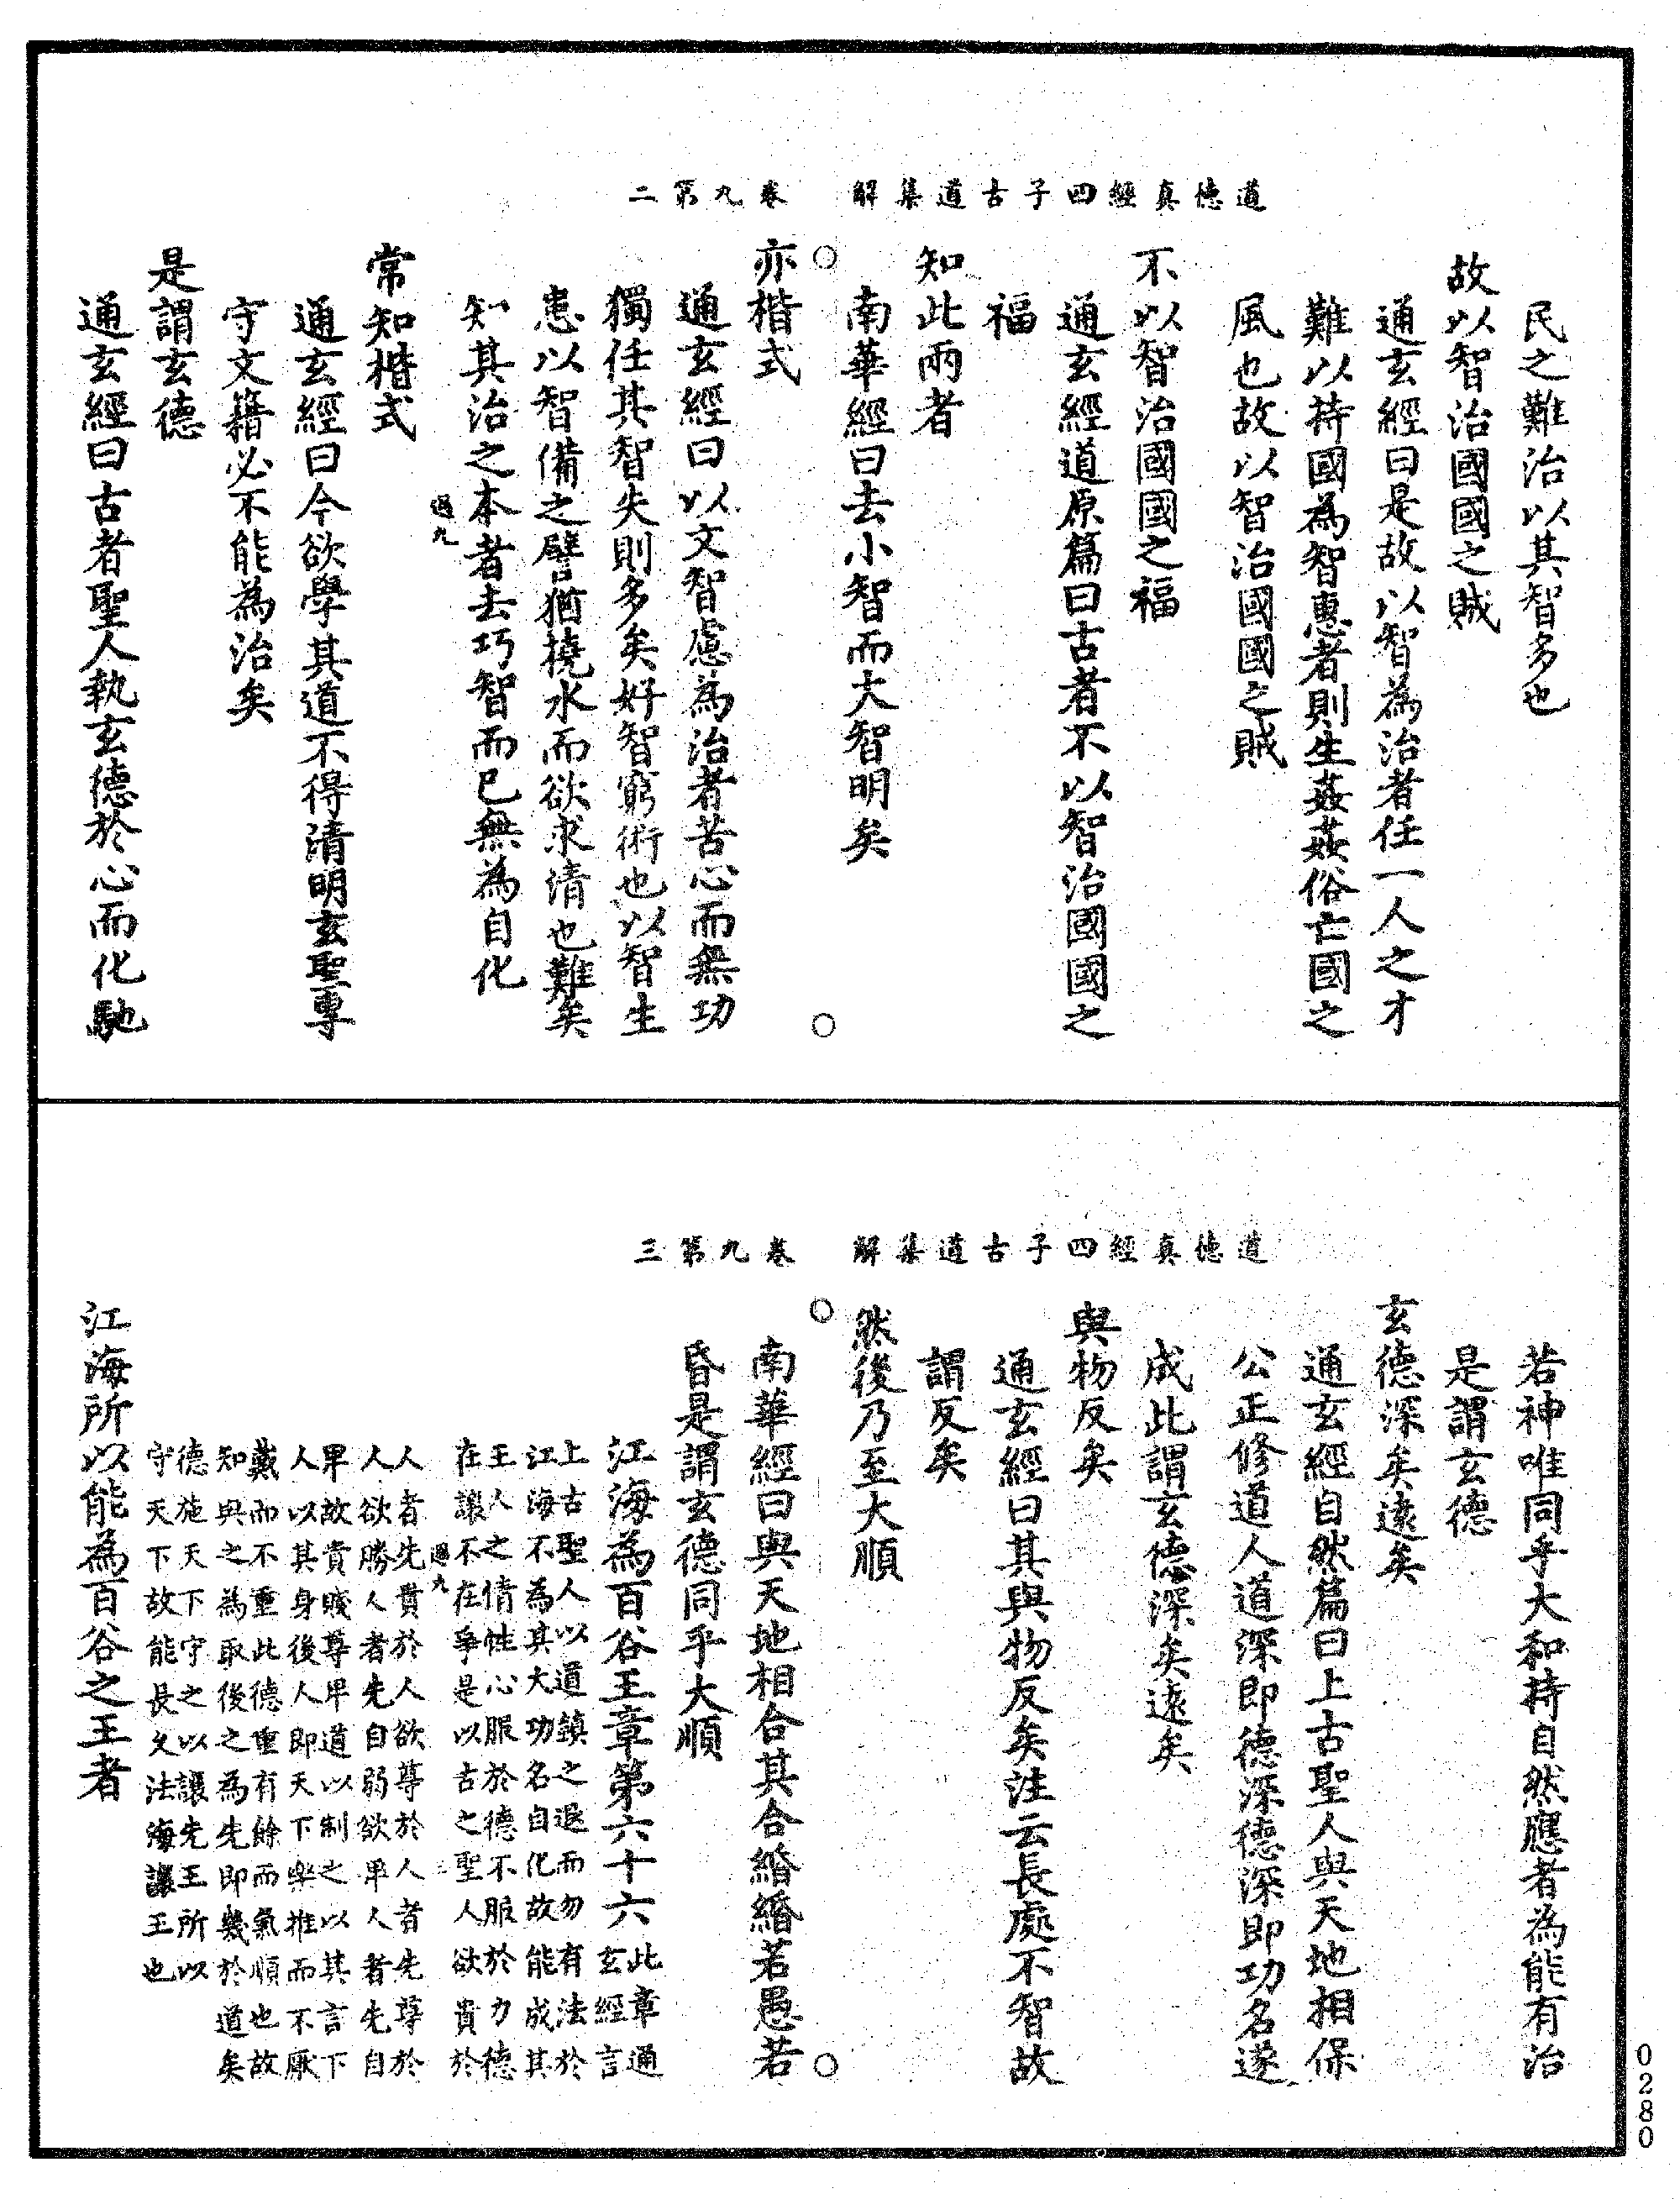 道德真經四子古道集解 卷九第二
民之難治以其智多也
故以智治國國之賊
通玄經曰是故以智為治者任一人之才
難以持國為智惠者則生姦姦俗亡國之
風也故以智治國國之賊
不以智治國國之福
通玄經道原篇曰古者不以智治國國之
福
知此兩者
南華經曰去小智而大智明矣
亦楷式
通玄經曰以文智慮為治者苦心而無功
獨任其智失則多矣好智窮術也以智生
患以智備之譬猶撓水而欲求清也難矣
知其治之本者去巧智而已無為自化
過九
常知楷式
通玄經曰今欲學其道不得清明玄聖專
守文籍必不能為治矣
是謂玄德
通玄經曰古者聖人執玄德於心而化馳
道德真經四子古道集解 卷九第三
若神唯同乎大和持自然應者為能有治
是謂玄德
玄德深矣遠矣
通玄經自然篇曰上古聖人與天地相保
公正修道人道深即德深德深即功名遂
成此謂玄德深矣遠矣
與物反矣
通玄經曰其與物反矣注云長處不智故
謂反矣
然後乃至大順
南華經曰與天地相合其合緡緡若愚若
昏是謂玄德同乎大順
江海為百谷王章第六十六
此章通
玄經言
上古聖人以道鎮之退而勿有法於
江海不為其大功名自化故能成其
王人之情性心服於德不服於力德
在讓不在爭是以古之聖人欲貴於
過九
人者先貴於人欲尊於人者先尊於
人欲勝人者先自弱欲卑人者先自
卑故貴賤尊卑道以制之以其言下
人以其身後人即天下樂推而不厭
戴而不重此德重有餘而氣順也故
知與之為取後之為先即幾於道矣
德施天下守之以讓先王所以
守天下故能長久法海讓王也
江海所以能為百谷之王者
0280